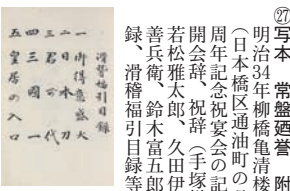 ㉗写本 常盤廼誉 附
明治34年柳橋亀清楼
(日本橋区通油町の
周年記念祝宴会の記
開会辞、祝辞(手塚
若松雅太郎、久田伊
善兵衛、鈴木富五郎
録、滑稽福引目録等
滑稽福引目録
一 御得意盛大
二 日本刀
三 君が代
四 三國一
五 皇居の入口